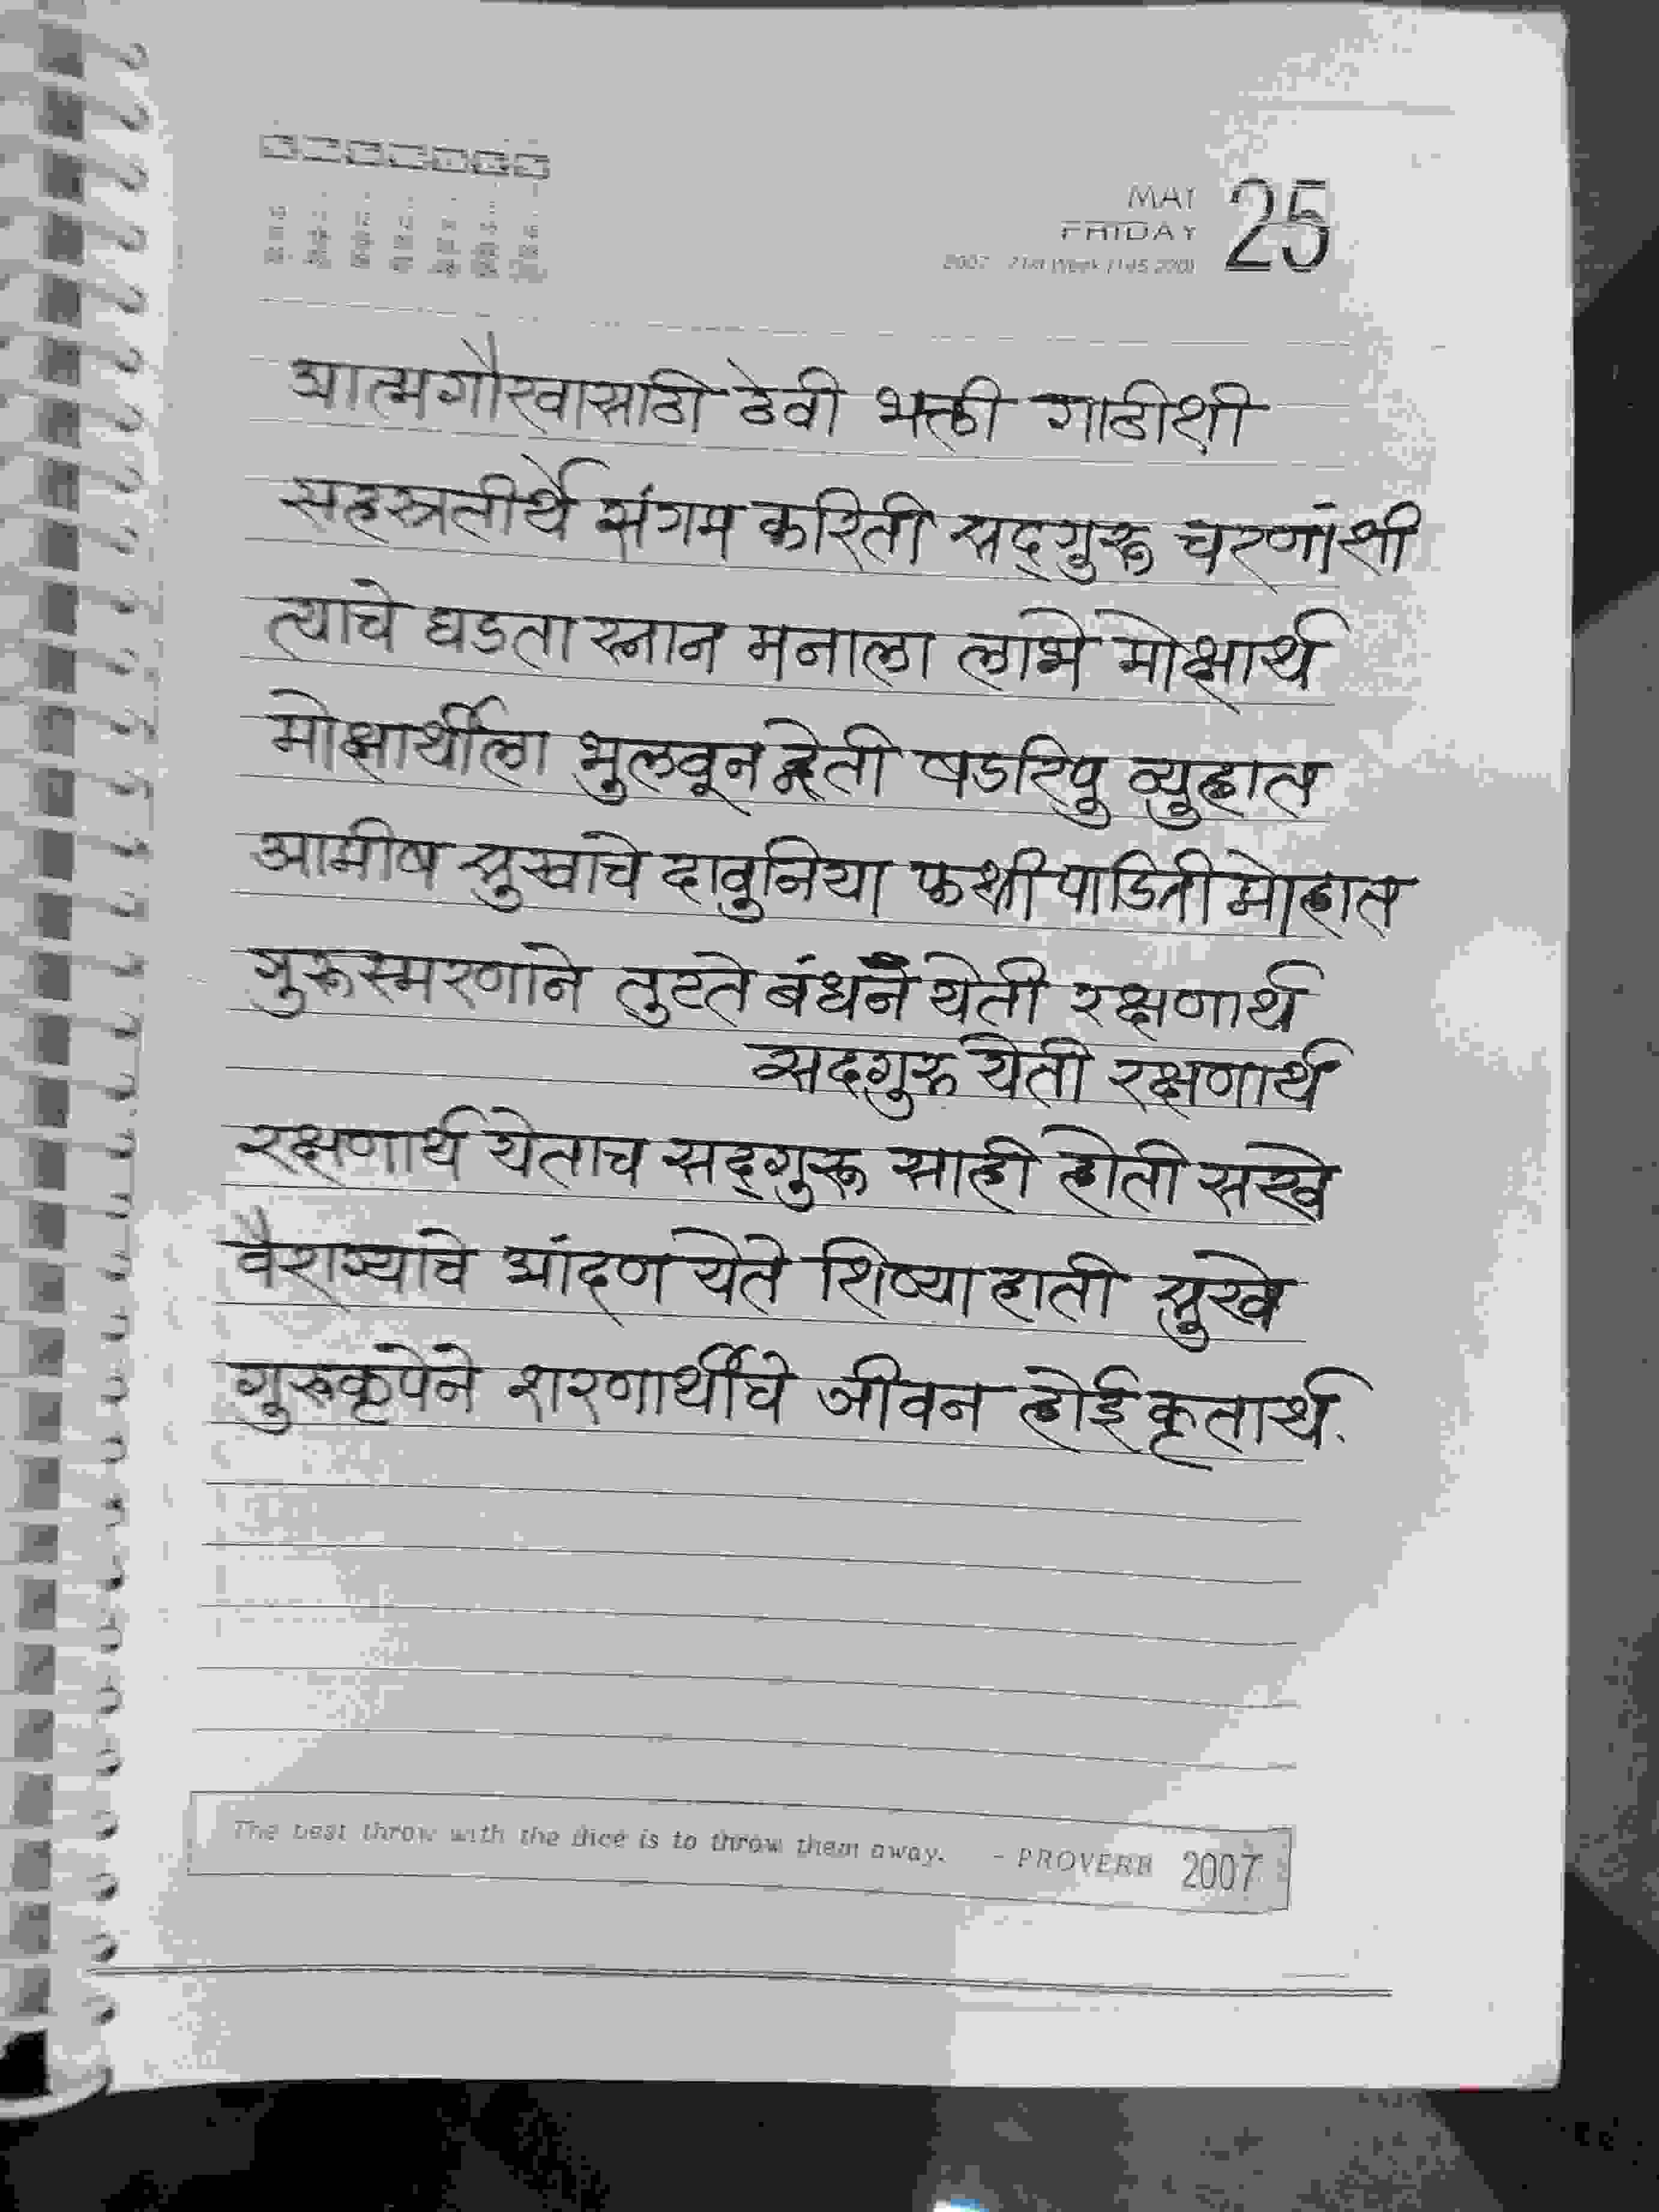 MAY
FRIDAY 25
2007 21st Week (145-220)
आत्मगौरवासाठी ठेवी भक्ती गाठीशी
सहस्त्रतीर्थे संगम करिती सद्‌गुरू चरणांशी
त्याचे घडता स्नान मनाला लाभे मोक्षार्थ
मोक्षार्थीला भुलवून नेती षडरिपु व्युहात
आमीष सुखाचे दावुनिया फशी पाडिती मोहात
गुरूस्मरणाने तुटते बंधने येती रक्षणार्थ
सदगुरू येती रक्षणार्थ
रक्षणार्थ येताच सद्‌गुरू साही होती सखे
वैराग्याचे आंदण येते शिष्या हाती सुखे
गुरुकृपेने शरणार्थीचे जीवन होई कृतार्थ.
The best throw with the dice is to throw them away. - PROVERB 2007